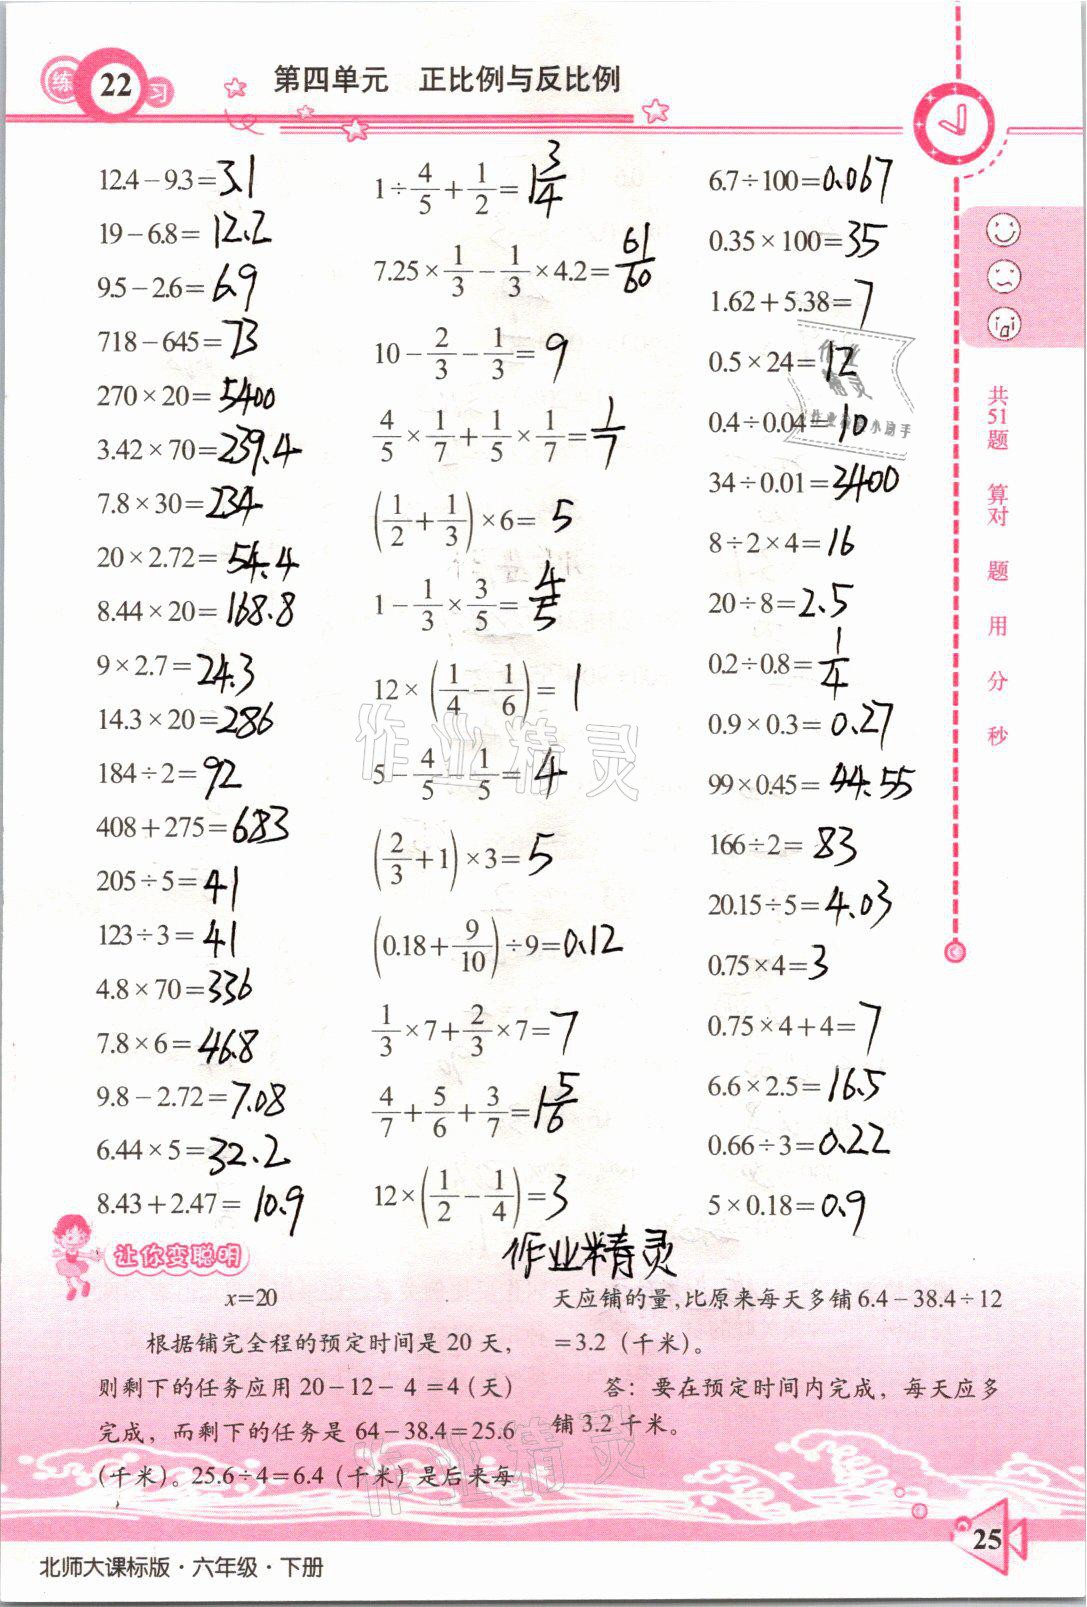 练 22 习
第四单元 正比例与反比例
12.4－9.3＝3.1
19－6.8＝12.2
9.5－2.6＝6.9
718－645＝73
270×20＝5400
3.42×70＝239.4
7.8×30＝234
20×2.72＝54.4
8.44×20＝168.8
9×2.7＝24.3
14.3×20＝286
184÷2＝92
408＋275＝683
205÷5＝41
123÷3＝41
4.8×70＝336
7.8×6＝46.8
9.8－2.72＝7.08
6.44×5＝32.2
8.43＋2.47＝10.9
1÷4/5＋1/2＝1 3/4
7.25×1/3－1/3×4.2＝61/60
10－2/3－1/3＝9
4/5×1/7＋1/5×1/7＝1/7
(1/2＋1/3)×6＝5
1－1/3×3/5＝4/5
12×(1/4－1/6)＝1
5－4/5－1/5＝4
(2/3＋1)×3＝5
(0.18＋9/10)÷9＝0.12
1/3×7＋2/3×7＝7
4/7＋5/6＋3/7＝1 5/6
12×(1/2－1/4)＝3
6.7÷100＝0.067
0.35×100＝35
1.62＋5.38＝7
0.5×24＝12
0.4÷0.04＝10
34÷0.01＝3400
8÷2×4＝16
20÷8＝2.5
0.2÷0.8＝1/4
0.9×0.3＝0.27
99×0.45＝44.55
166÷2＝83
20.15÷5＝4.03
0.75×4＝3
0.75×4＋4＝7
6.6×2.5＝16.5
0.66÷3＝0.22
5×0.18＝0.9
共51题 算对 题 用 分 秒
作业
精灵
作业精灵
作业精灵
让你变聪明
x=20
根据铺完全程的预定时间是 20 天，
则剩下的任务应用 20－12－4＝4（天）
完成，而剩下的任务是 64－38.4＝25.6
（千米）。25.6÷4＝6.4（千米）是后来每
天应铺的量，比原来每天多铺 6.4－38.4÷12
＝3.2（千米）。
答：要在预定时间内完成，每天应多
铺 3.2 千米。
作业精灵
25
北师大课标版·六年级·下册